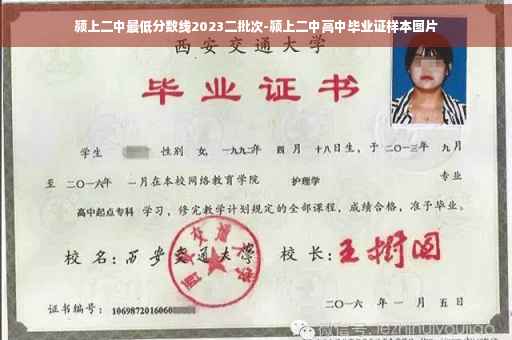 颍上二中最低分数线2023二批次-颍上二中高中毕业证样本图片
西安交通大学
毕业证书
学生 性别 女, 一九九二年 四月 十八日生, 于二〇一三年 九月
至 二〇一六年 一月在本校网络教育学院 护理学 专业
高中起点专科 学习, 修完教学计划规定的全部课程, 成绩合格, 准予毕业。
校 名: 西安交通大学 校 长: 王树国
证书编号: 1069872016060
二〇一六 年 一 月 五 日
微信号: jiezhihuiyoujiao